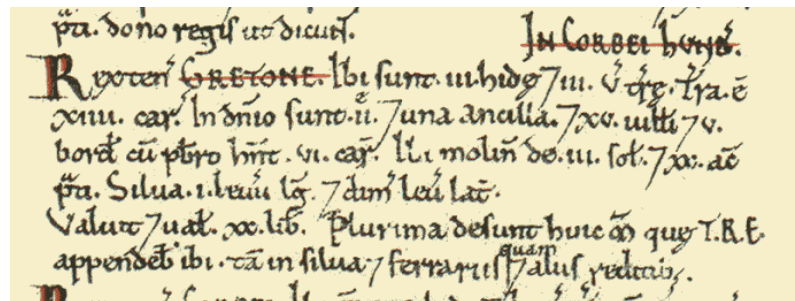 p̃ti. dono regis ut dicunt̃.
IN CORBEI HVND̃.
Rex ten̄ GRETONE. Ibi sunt. iii. hidę ⁊ iii. v̄ t̃rę. T̃ra. ē
xiiii. car̃. In dn̄io sunt. ii. ⁊ una ancilla. ⁊ xv. uilłi ⁊ v.
bord̄ cū p̃bro hn̄t. vi. car̃. Ibi molin̄ de. iii. sol̄. ⁊ xx. ac̄
p̃ti. Silua. i. leuū lḡ. ⁊ dim̄ leu̅ lat̄.
Valuit ⁊ ual̄. xx. lib̄. Plurima desunt huic m̄ quę T.R.E.
appendeb̄ ibi. tā in silua ⁊ ferrariis quam ⁊ aliis redditib;.